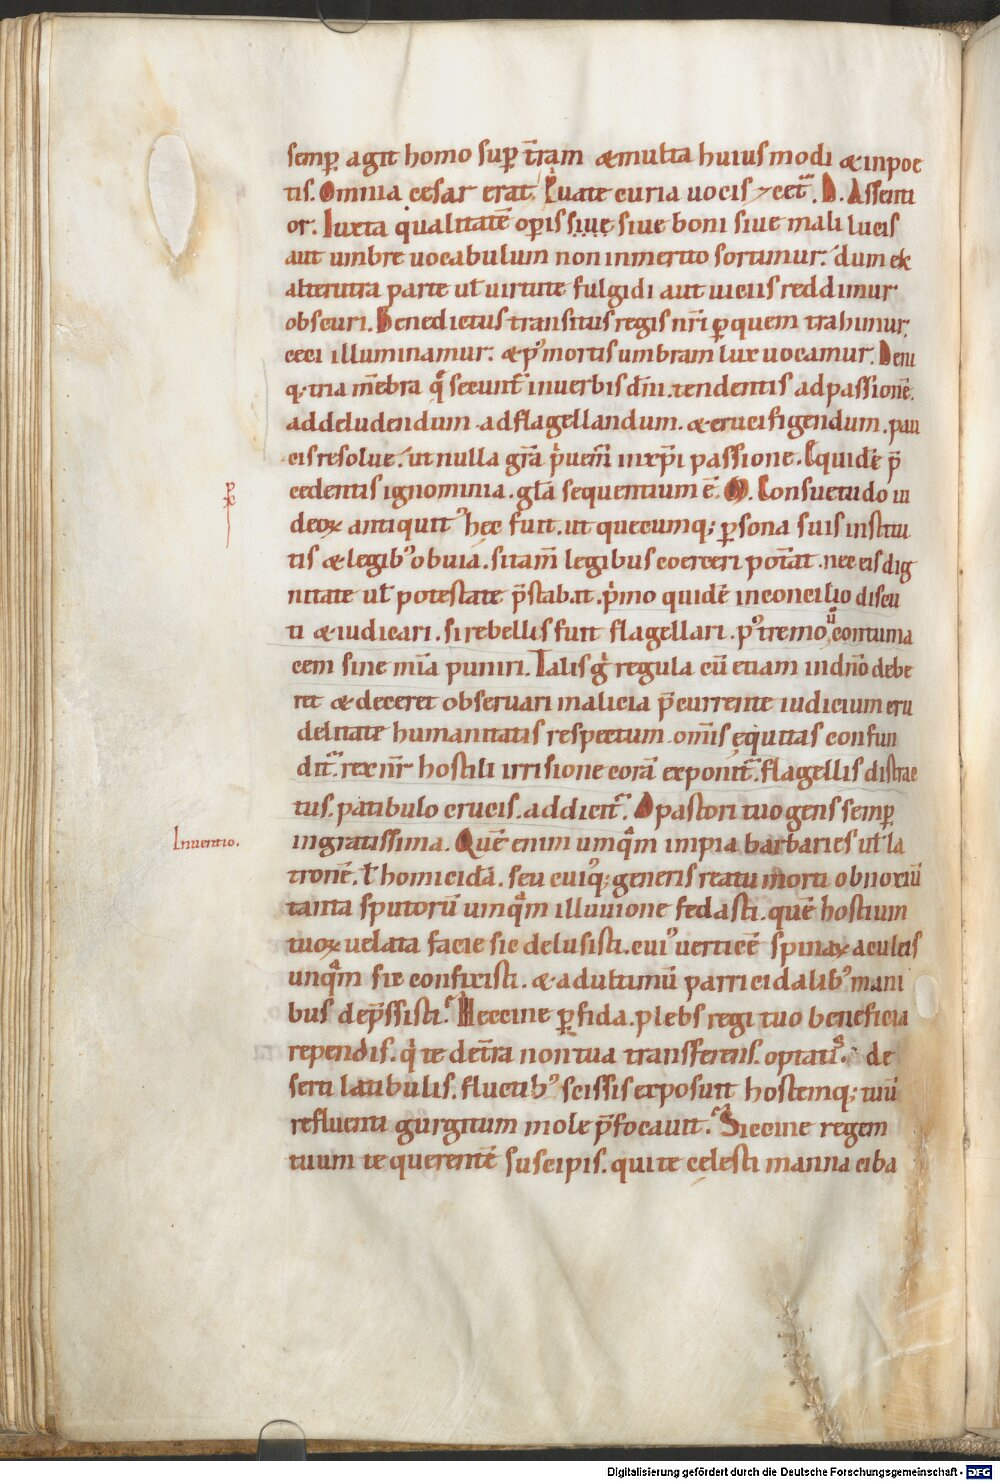 semꝑ agit homo suꝑ tr̄am ⁊multa huiusmodi ⁊inpoe
tis. Omnia cesar erat. uate curia uocis ⁊cet. D. Assenti
or. Iuxta qualitatē oꝑis siue siue boni siue mali lucis
aut umbre uocabulum non inmerito sortimur. dum ex
alterutra parte ul̄ uirtute fulgidi aut uiciis reddimur
obscuri. Benedictus transitus regis nr̄i ꝑ quem trahimur.
ceci illuminamur. ⁊ pꝰ mortis umbram lux uocamur. Deni
q; tria mēbra q̄ secunt̄ inuerbis dn̄i. tendentis ad passionē.
addeludendum ad flagellandum. ⁊crucifigendum. pau
cis resolue. ut nulla gr̄a p̍uem̄ inxp̄i passione. Equidē p̄
cedentis ignominia. gl̄a sequentium ē. O. Consuetudo iu
deoꝝ antiquitꝰ hec fuit. ut quecumq; ꝑsona suis institu
tis ⁊legibꝰ obuia. sitam̄ legibus coerceri potāt. nec eis dig
nitate ul̄ potestate p̄stabat. p̍mo quidē inconcilio discu
ti ⁊iudicari. si rebellis fuit flagellari. pꝰtremo ũ contuma
cem sine mīa puniri. Talis g̍ regula cū etiam indn̄o debe
ret ⁊deceret obseruari malicia p̄currente iudicium cru
delitate humanitatis respectum. om̄is equitas confun
dit̄. rex nr̄ hostili irrisione corā exponit̄. flagellis distrac
tus. patibulo crucis. addicit̄. O pastori tuo gens semꝑ
Inuentio.
ingratissima. Quē enim umqām impia barbaries ul̄ la
tronē. ul̄ homicidā. seu cuiꝰq; generis reatu morti obnoxiū
tanta sputorū umqām illuuione fedasti. quē hostium
tuoꝝ uelata facie sic delusisti. cuiꝰ uerticē spinaꝝ aculeis
unqām sic confixisti. ⁊adultimū parricidalibꝰ mani
bus dep̄ssisti. Heccine ꝑfida. plebs regi tuo beneficia
rependis. q̍ te detr̄a non tua transferens. optati de
serti latibulis. fluctibꝰ scissis exposuit hostemq; tuū
refluenti gurgitum mole p̄focauit. Siccine regem
tuum te querentē suscipis. qui te celesti manna ciba
Digitalisierung gefördert durch die Deutsche Forschungsgemeinschaft - DFG